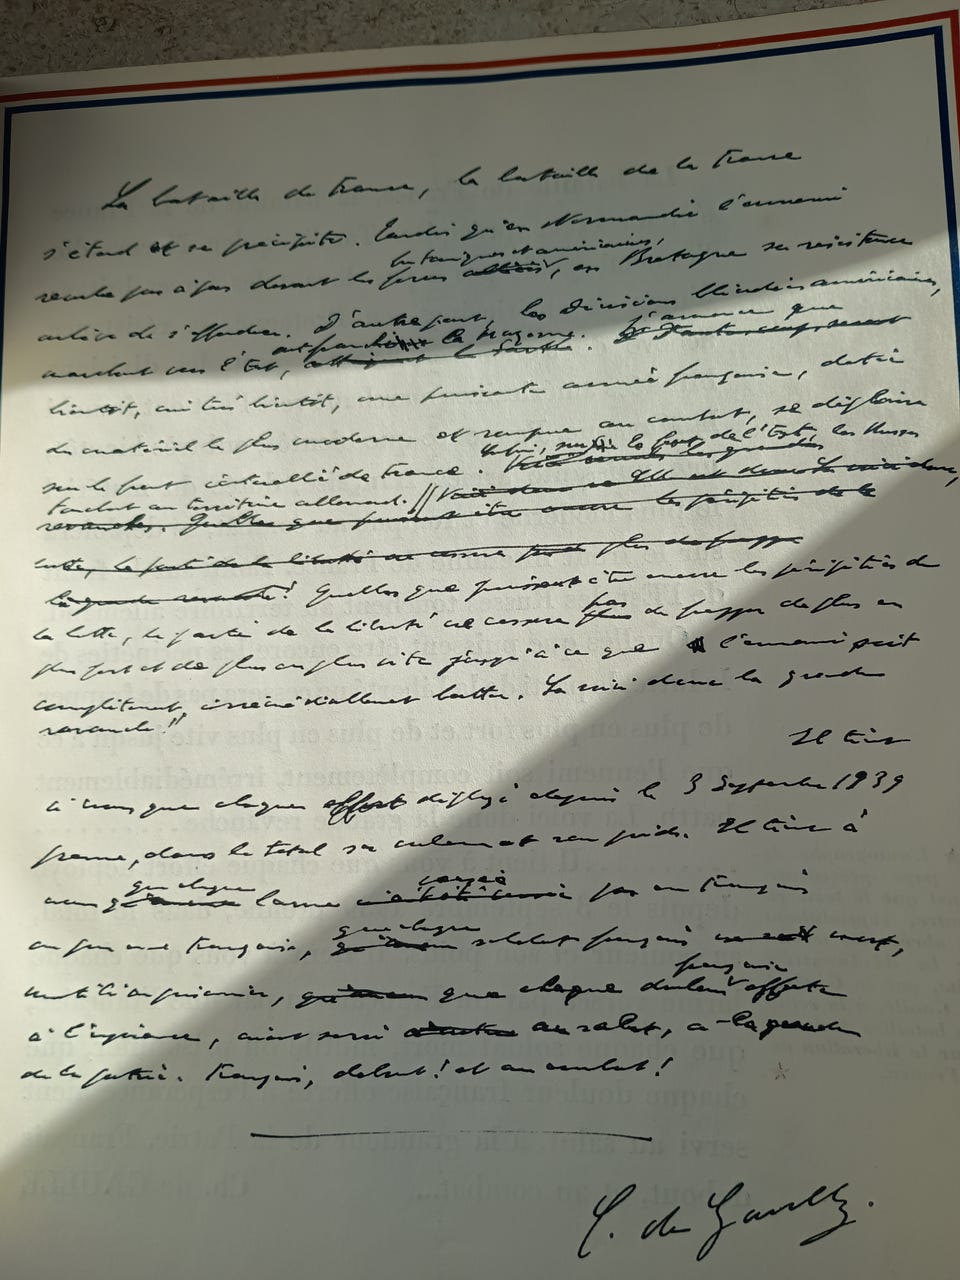 La bataille de France, la bataille de la France
s'étend et se précipite. Tandis qu'en Normandie l'ennemi
britanniques et américaines,
recule pas à pas devant les forces alliées, en Bretagne sa résistance
achève de s'effondrer. D'autre part, les divisions blindées américaines,
j'annonce que
ont franchi la Mayenne.
marchant vers l'Est, atteignent la Sarthe. D'autre
bientôt, très bientôt, une puissante armée française, dotée
du matériel le plus moderne et rompue au combat, se déploiera
sur le front de l'Est, les Russes
sur le front intérieur de France. Voici
touchent au territoire allemand. Voici donc
revanche. Quelles que puissent être encore les péripéties de la
lutte, la partie de la liberté ne cessera plus de frapper
la grande revanche! Quelles que puissent être encore les péripéties de
pas
la lutte, la partie de la liberté ne cessera plus de frapper de plus en
plus fort et de plus en plus vite jusqu'à ce que l'ennemi soit
complètement, irrémédiablement battu. La voici donc la grande
revanche!
Il tient
à vous que chaque effort déployé depuis le 3 Septembre 1939
prenne, dans le total sa valeur et son poids. Il tient à
que chaque
vous larme versée par un Français
que chaque
ou par une Française, soldat français mort,
française
mutilé ou prisonnier, que chaque douleur offerte
à l'espérance, aient servi au salut, à la grandeur
de la patrie. Français, debout! et au combat!
C. de Gaulle.